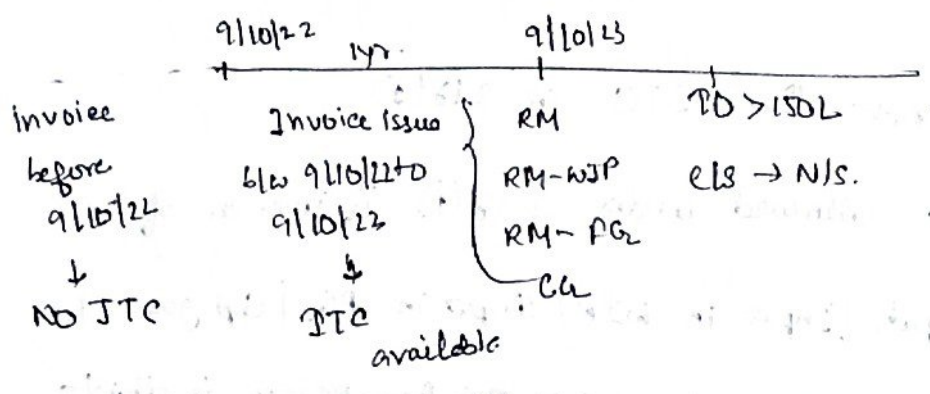 9/10/22 1yr. 9/10/23
invoice
before
9/10/22
↓
NO ITC
Invoice issue
b/w 9/10/22 to
9/10/23
↓
ITC
available
RM
RM-WIP
RM-FG
CG
TO > 150L
c/s → N/S.